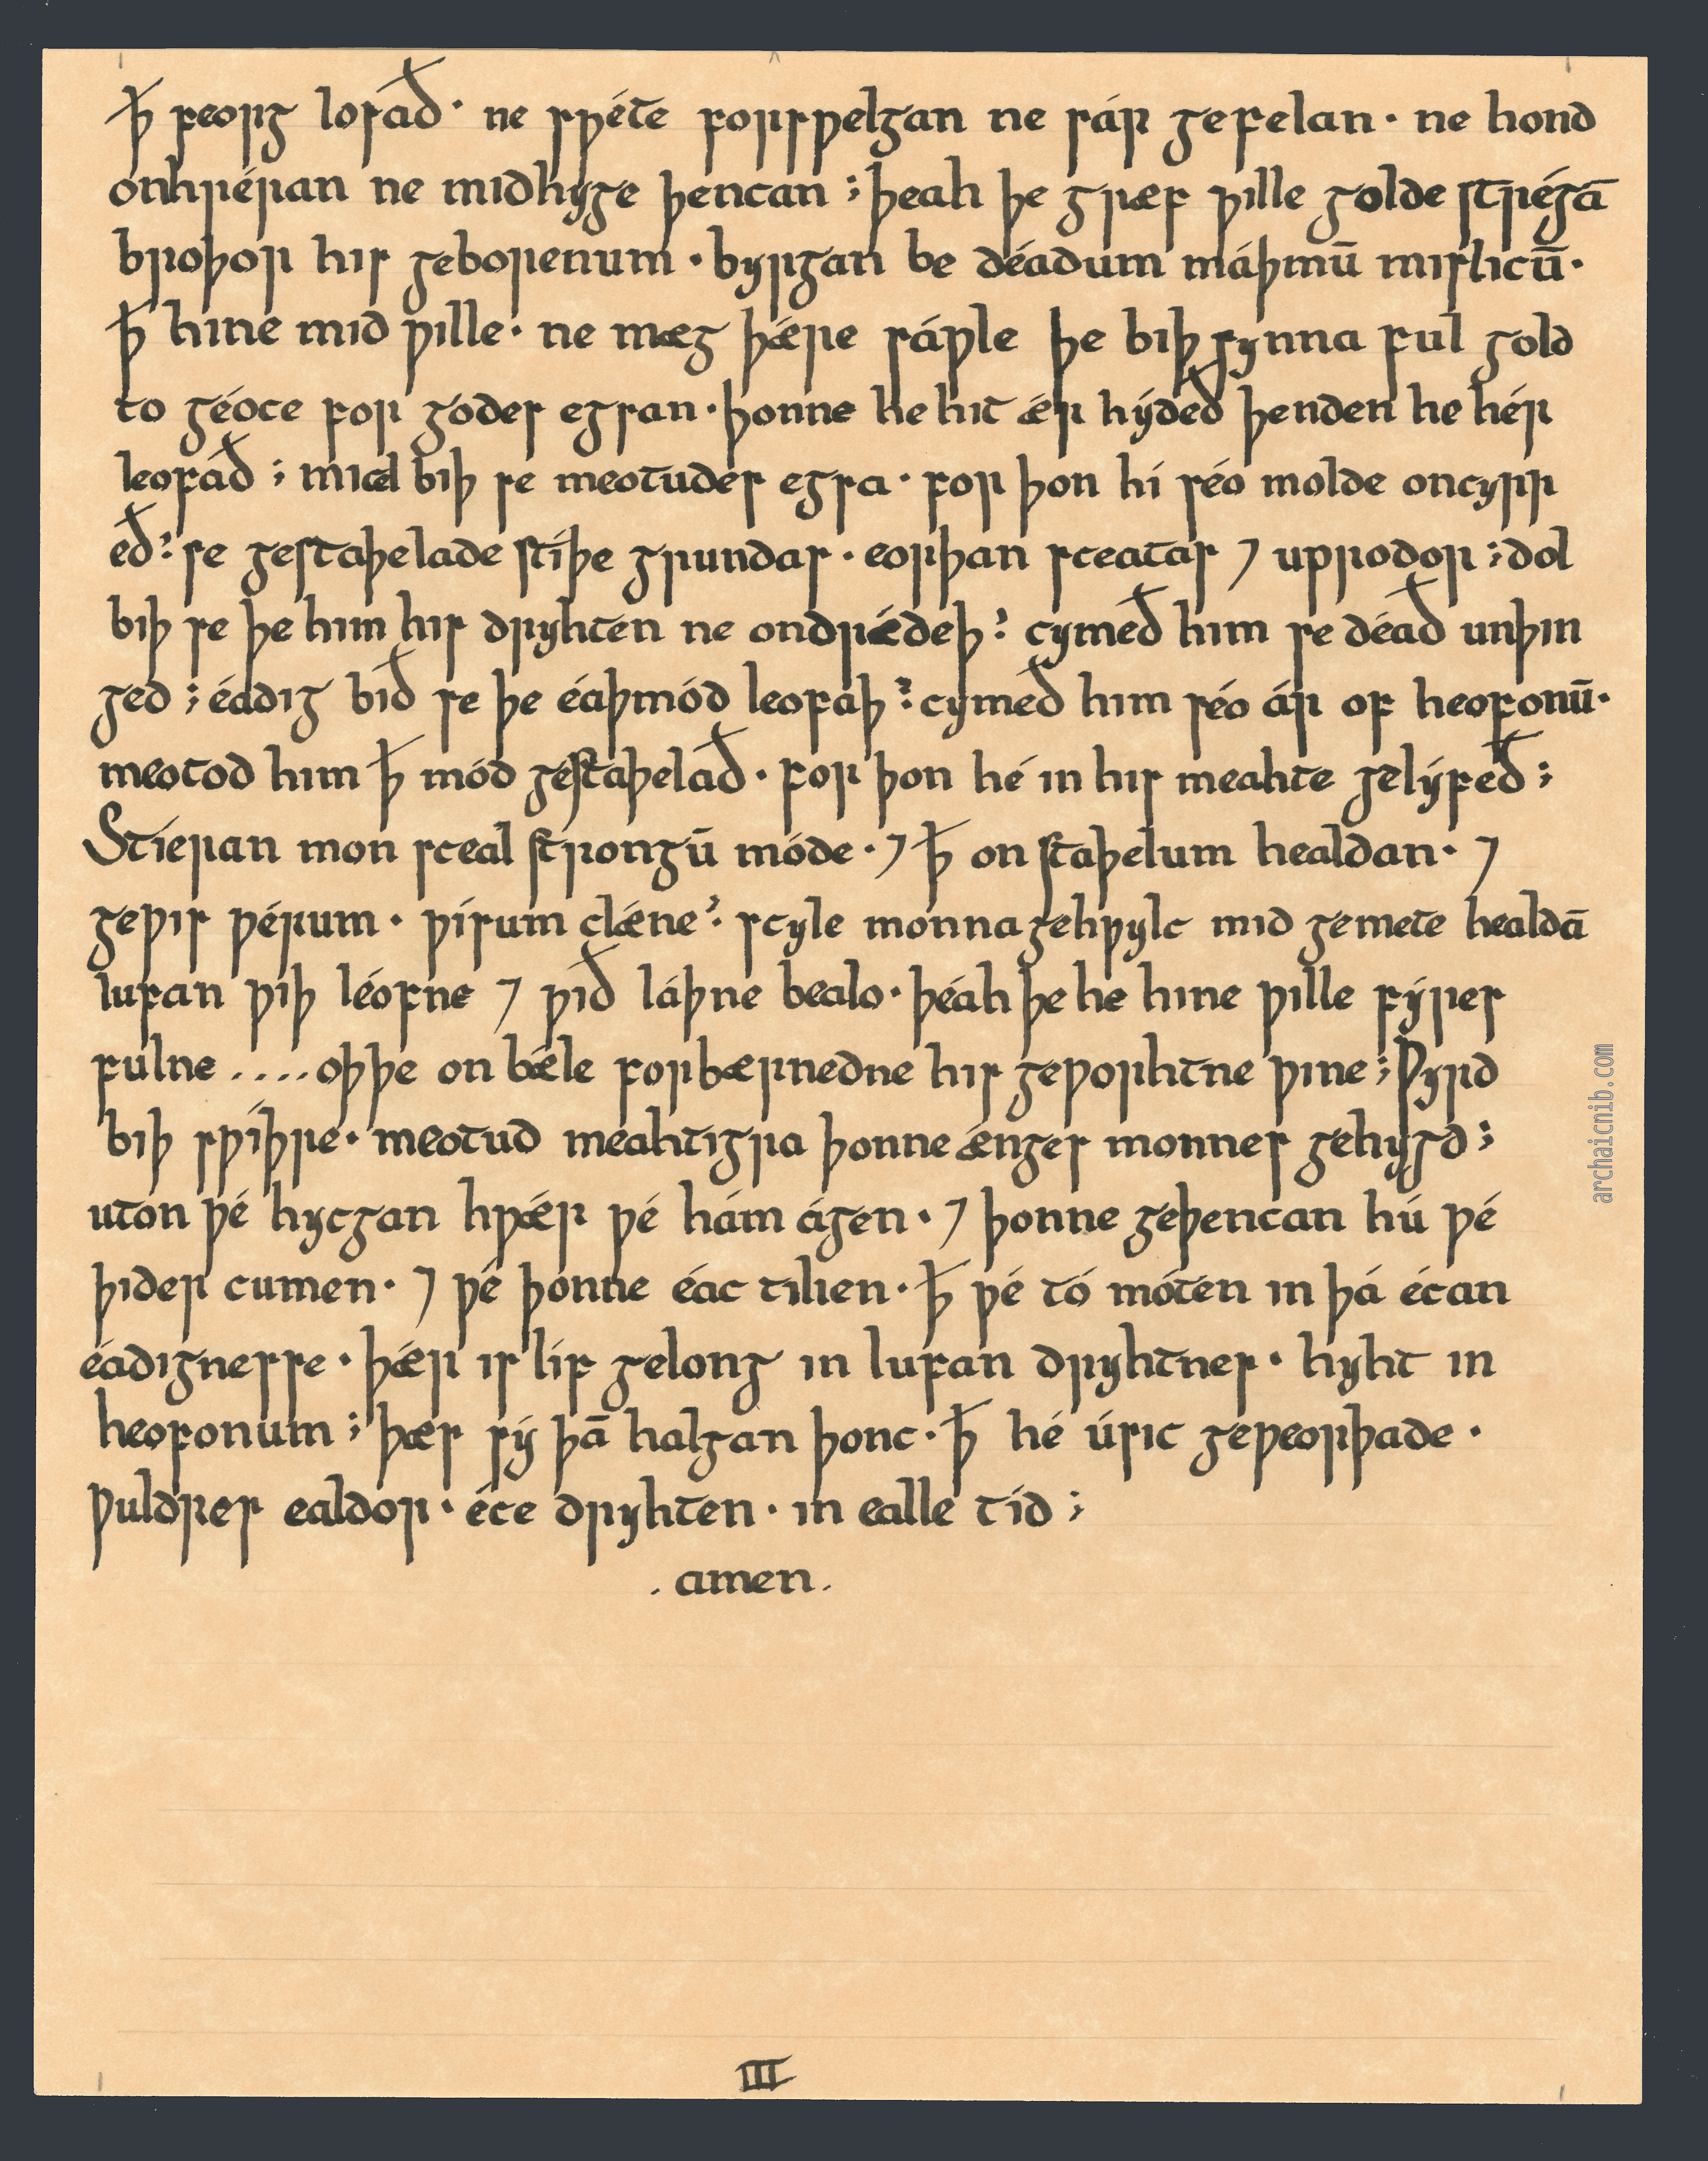 ꝥ feorg losað· ne swéte forswelgan ne sár gefelan· ne hond
onhréran ne midhyge þencan ; þeah þe græf wille golde strégā
broþor his geborenum · byrgan be déadum máþmū mislicū·
ꝥ hine mid wille· ne mæg þǽre sáwle þe biþ synna ful gold
to géoce for godes egsan · þonne he hit ǽr hýdeð þenden he hér
leofað ; micel biþ se meotudes egsa · for þon hí séo molde oncyrr
eð: se gestaþelade stíþe grundas · eorþan sceatas ⁊ uprodor ; dol
biþ se þe him his dryhten ne ondrǽdeþ: cymeð him se déað unþin
ged ; éadig bið se þe éaþmód leofaþ: cymeð him séo ár of heofonū·
meotod him ꝥ mód gestaþelað · for þon hé in his meahte gelýfeð ;
Stíeran mon sceal strongū móde · ⁊ ꝥ on staþelum healdan · ⁊
gewis wérum · wísum clǽne: scyle monna gehwylc mid gemete healdā
lufan wiþ léofne ⁊ wið láþne bealo · þéah þe he hine wille fýres
fulne .... oþþe on bǽle forbærnedne his geworhtne wine ; Wyrd
biþ swíþre · meotud meahtigra þonne ǽnges monnes gehygd ;
uton wé hycgan hwǽr wé hám ágen · ⁊ þonne geþencan hú wé
þider cumen · ⁊ wé þonne éac tilien · ꝥ wé tó móten in þá écan
éadignesse · þǽr is líf gelong in lufan dryhtnes · hyht in
heofonum ; þæs sý þā halgan þonc · ꝥ hé úsic geweorþade ·
wuldres ealdor · éce dryhten · in ealle tíd ;
. amen .
III
archaicnib.com